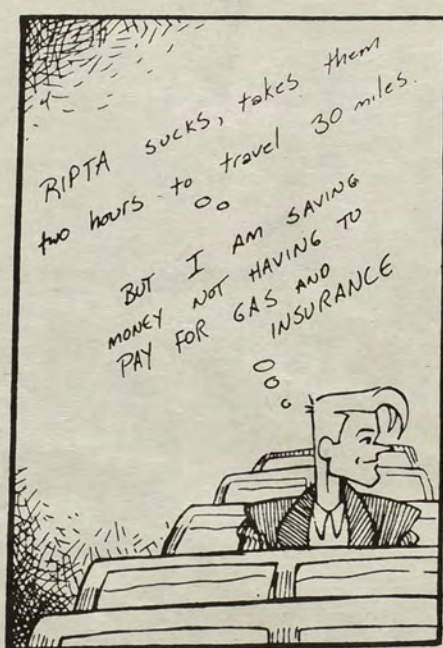 RIPTA sucks, takes them
two hours to travel 30 miles.
BUT I AM SAVING
MONEY NOT HAVING TO
PAY FOR GAS AND
INSURANCE